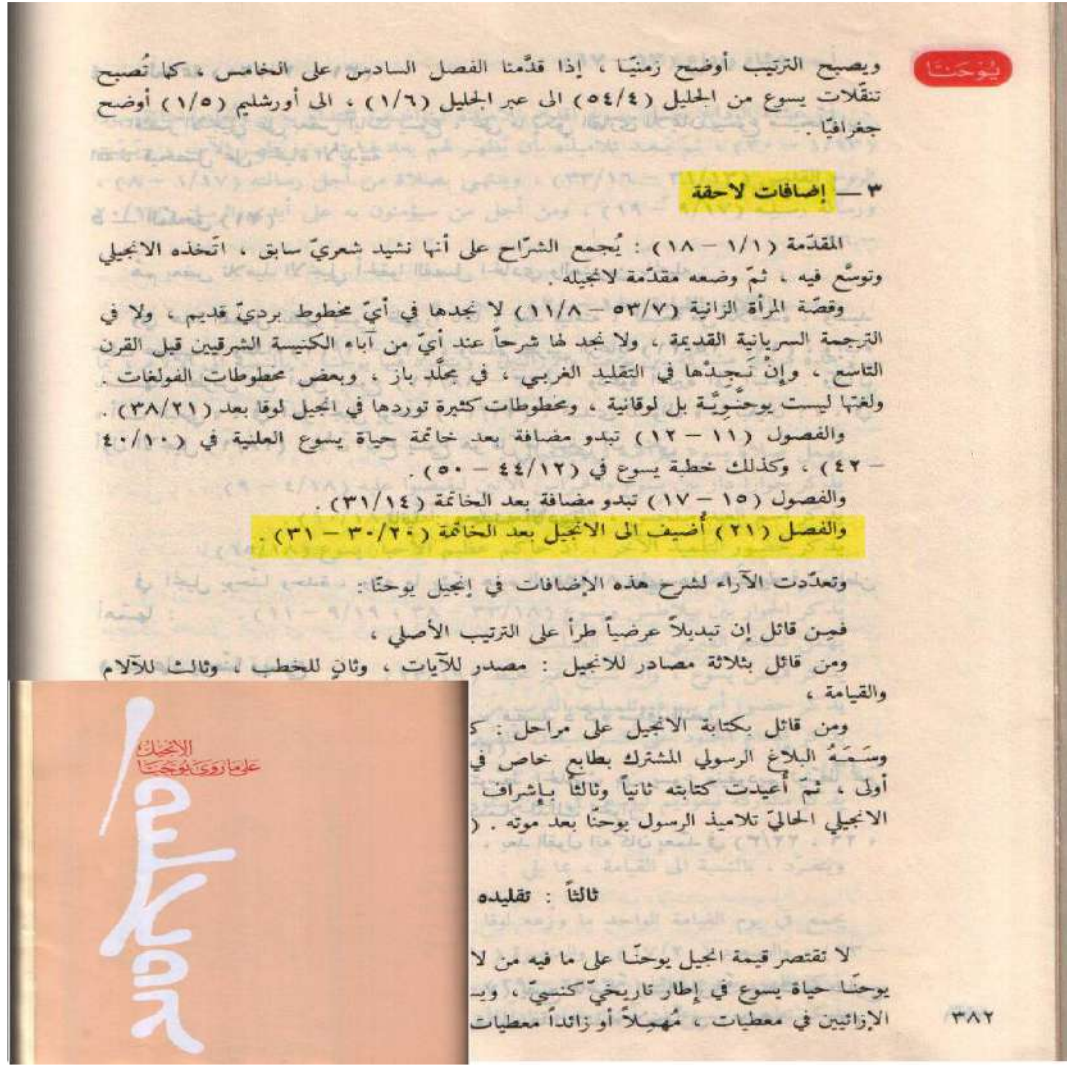 يوحنا
ويصبح الترتيب أوضح زمنيّا ، إذا قدّمنا الفصل السادس على الخامس ، كما تُصبح
تنقّلات يسوع من الجليل (٥٤/٤) الى عبر الجليل (١/٦) ، الى أورشليم (١/٥) أوضح
جغرافيّا .
٣ — إضافات لاحقة
المقدّمة (١/١ – ١٨) : يُجمع الشرّاح على أنها نشيد شعريّ سابق ، اتّخذه الانجيلي
وتوسَّع فيه ، ثمّ وضعه مقدّمة لانجيله .
وقصّة المرأة الزانية (٥٣/٧ – ١١/٨) لا نجدها في أيّ مخطوط برديّ قديم ، ولا في
الترجمة السريانية القديمة ، ولا نجد لها شرحاً عند أيّ من آباء الكنيسة الشرقيين قبل القرن
التاسع ، وإنْ نَجِدْها في التقليد الغربي ، في مجلَّد باز ، وبعض مخطوطات الفولغات .
ولغتها ليست يوحنَّوِيَّة بل لوقانية ، ومخطوطات كثيرة توردها في انجيل لوقا بعد (٣٨/٢١) .
والفصول (١١ – ١٢) تبدو مضافة بعد خاتمة حياة يسوع العلنية في (٤٠/١٠
– ٤٢) ، وكذلك خطبة يسوع في (٤٤/١٢ – ٥٠) .
والفصول (١٥ – ١٧) تبدو مضافة بعد الخاتمة (٣١/١٤) .
والفصل (٢١) أُضيف الى الانجيل بعد الخاتمة (٣٠/٢٠ – ٣١) .
وتعدّدت الآراء لشرح هذه الإضافات في إنجيل يوحنّا :
فمِن قائل إن تبديلاً عرضياً طرأ على الترتيب الأصلي ،
ومن قائل بثلاثة مصادر للانجيل : مصدر للآيات ، وثانٍ للخطب ، وثالث للآلام
والقيامة ،
ومن قائل بكتابة الانجيل على مراحل :
وسَمَهُ البلاغ الرسولي المشترك بطابع خاص في
أولى ، ثم أُعيدت كتابته ثانياً وثالثاً بإشراف
الانجيلي الحاليّ تلاميذ الرسول يوحنّا بعد موته . (
ثالثاً : تقليده
لا تقتصر قيمة انجيل يوحنّا على ما فيه من
يوحنّا حياة يسوع في إطار تاريخيّ كنسيّ ،
الإزائيين في معطيات ، مُهمِلاً أو زائداً معطيات
٣٨٢
الانجيل
على ما روى يوحنا